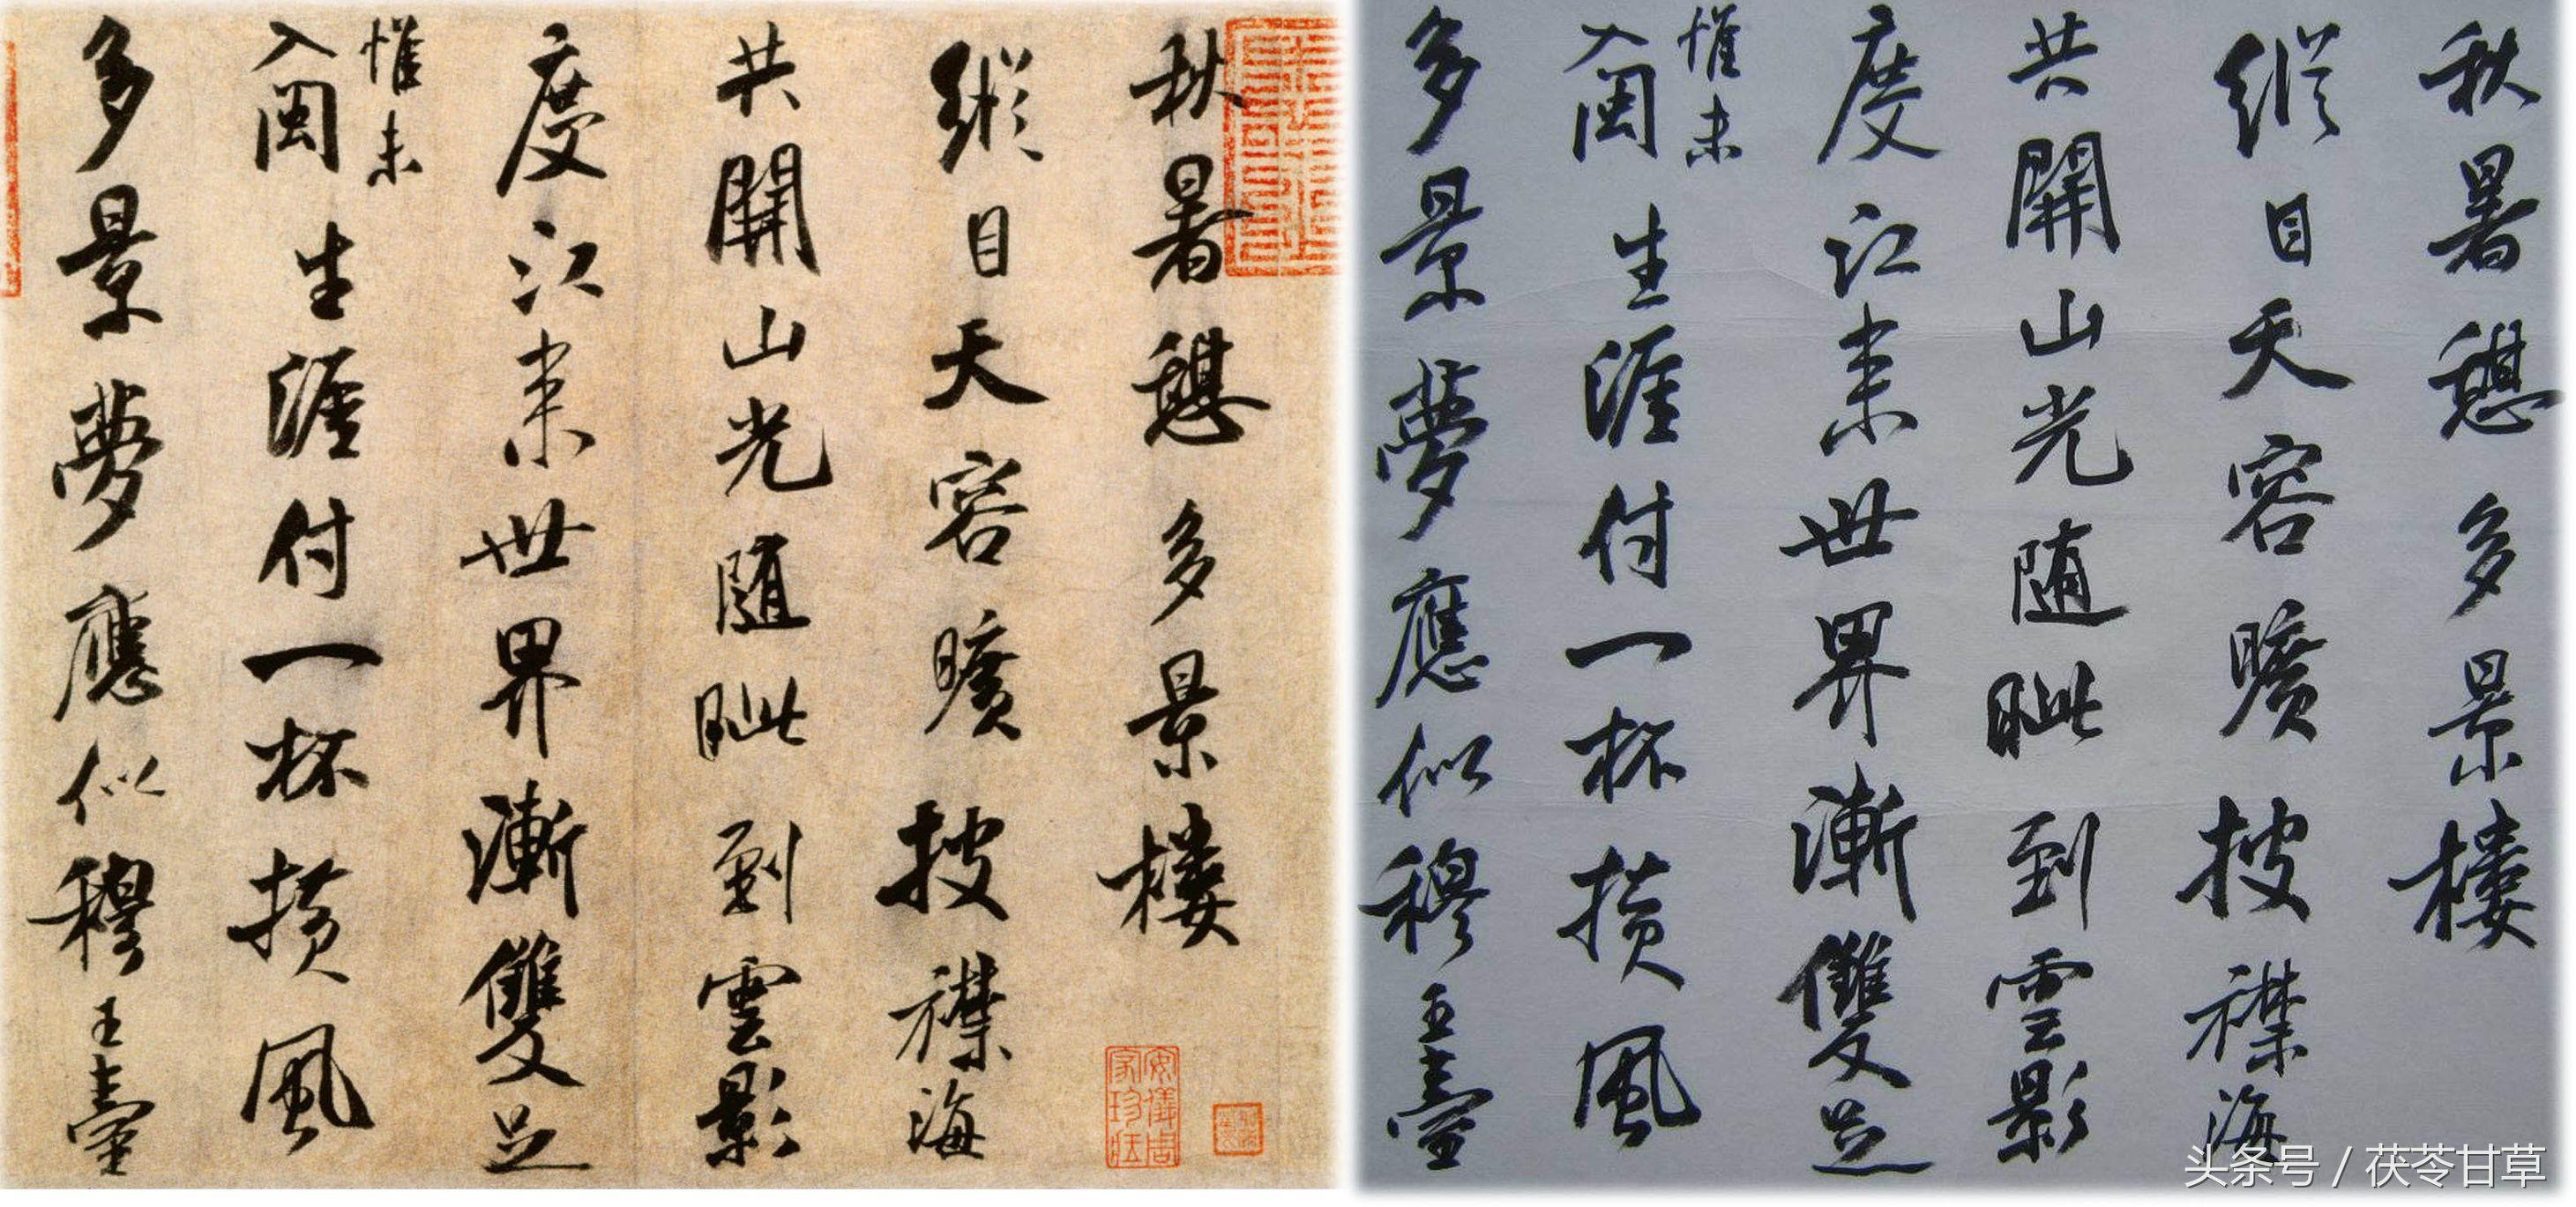 秋暑憩多景樓
縱目天容曠披襟海
共開山光随眦到雲影
度江来世界漸雙足
惟未
入閩生涯付一杯撗風
多景夢應似穆王臺
安儀周
家珍藏
秋暑憩多景樓
縱目天容曠披襟海
共開山光随眦到雲影
度江来世界漸雙足
惟未
入閩生涯付一杯撗風
多景夢應似穆王臺
头条号 / 茯苓甘草